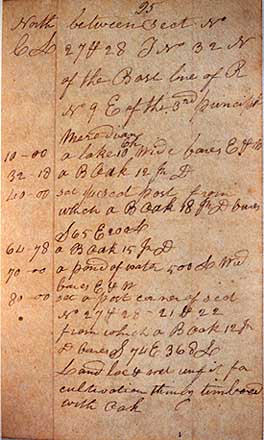 25
North between sect No
C L 27 & 28 T No 32 N
of the Base line of R
No 9 E of the 3rd Princip
Meredian
10-00 a lake 10 ch Wide bares E & W
32-18 a B Oak 12 In D
40-00 set 1/4 sect Post from
which a B Oak 18 In D bares
S 65 E 200 L
64-78 a B Oak 15 In D
70-00 a pond of water 500 L Wid
bares E & W
80-00 set a post corner of sect
No 27 & 28 - 21 & 22
from which a B Oak 12 In
D bares S 74 E 36 L
Land & wet unfit for
cultivation thinly timbered
with Oak